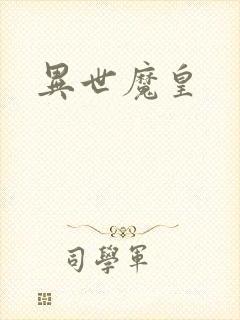 異世魔皇
司學軍